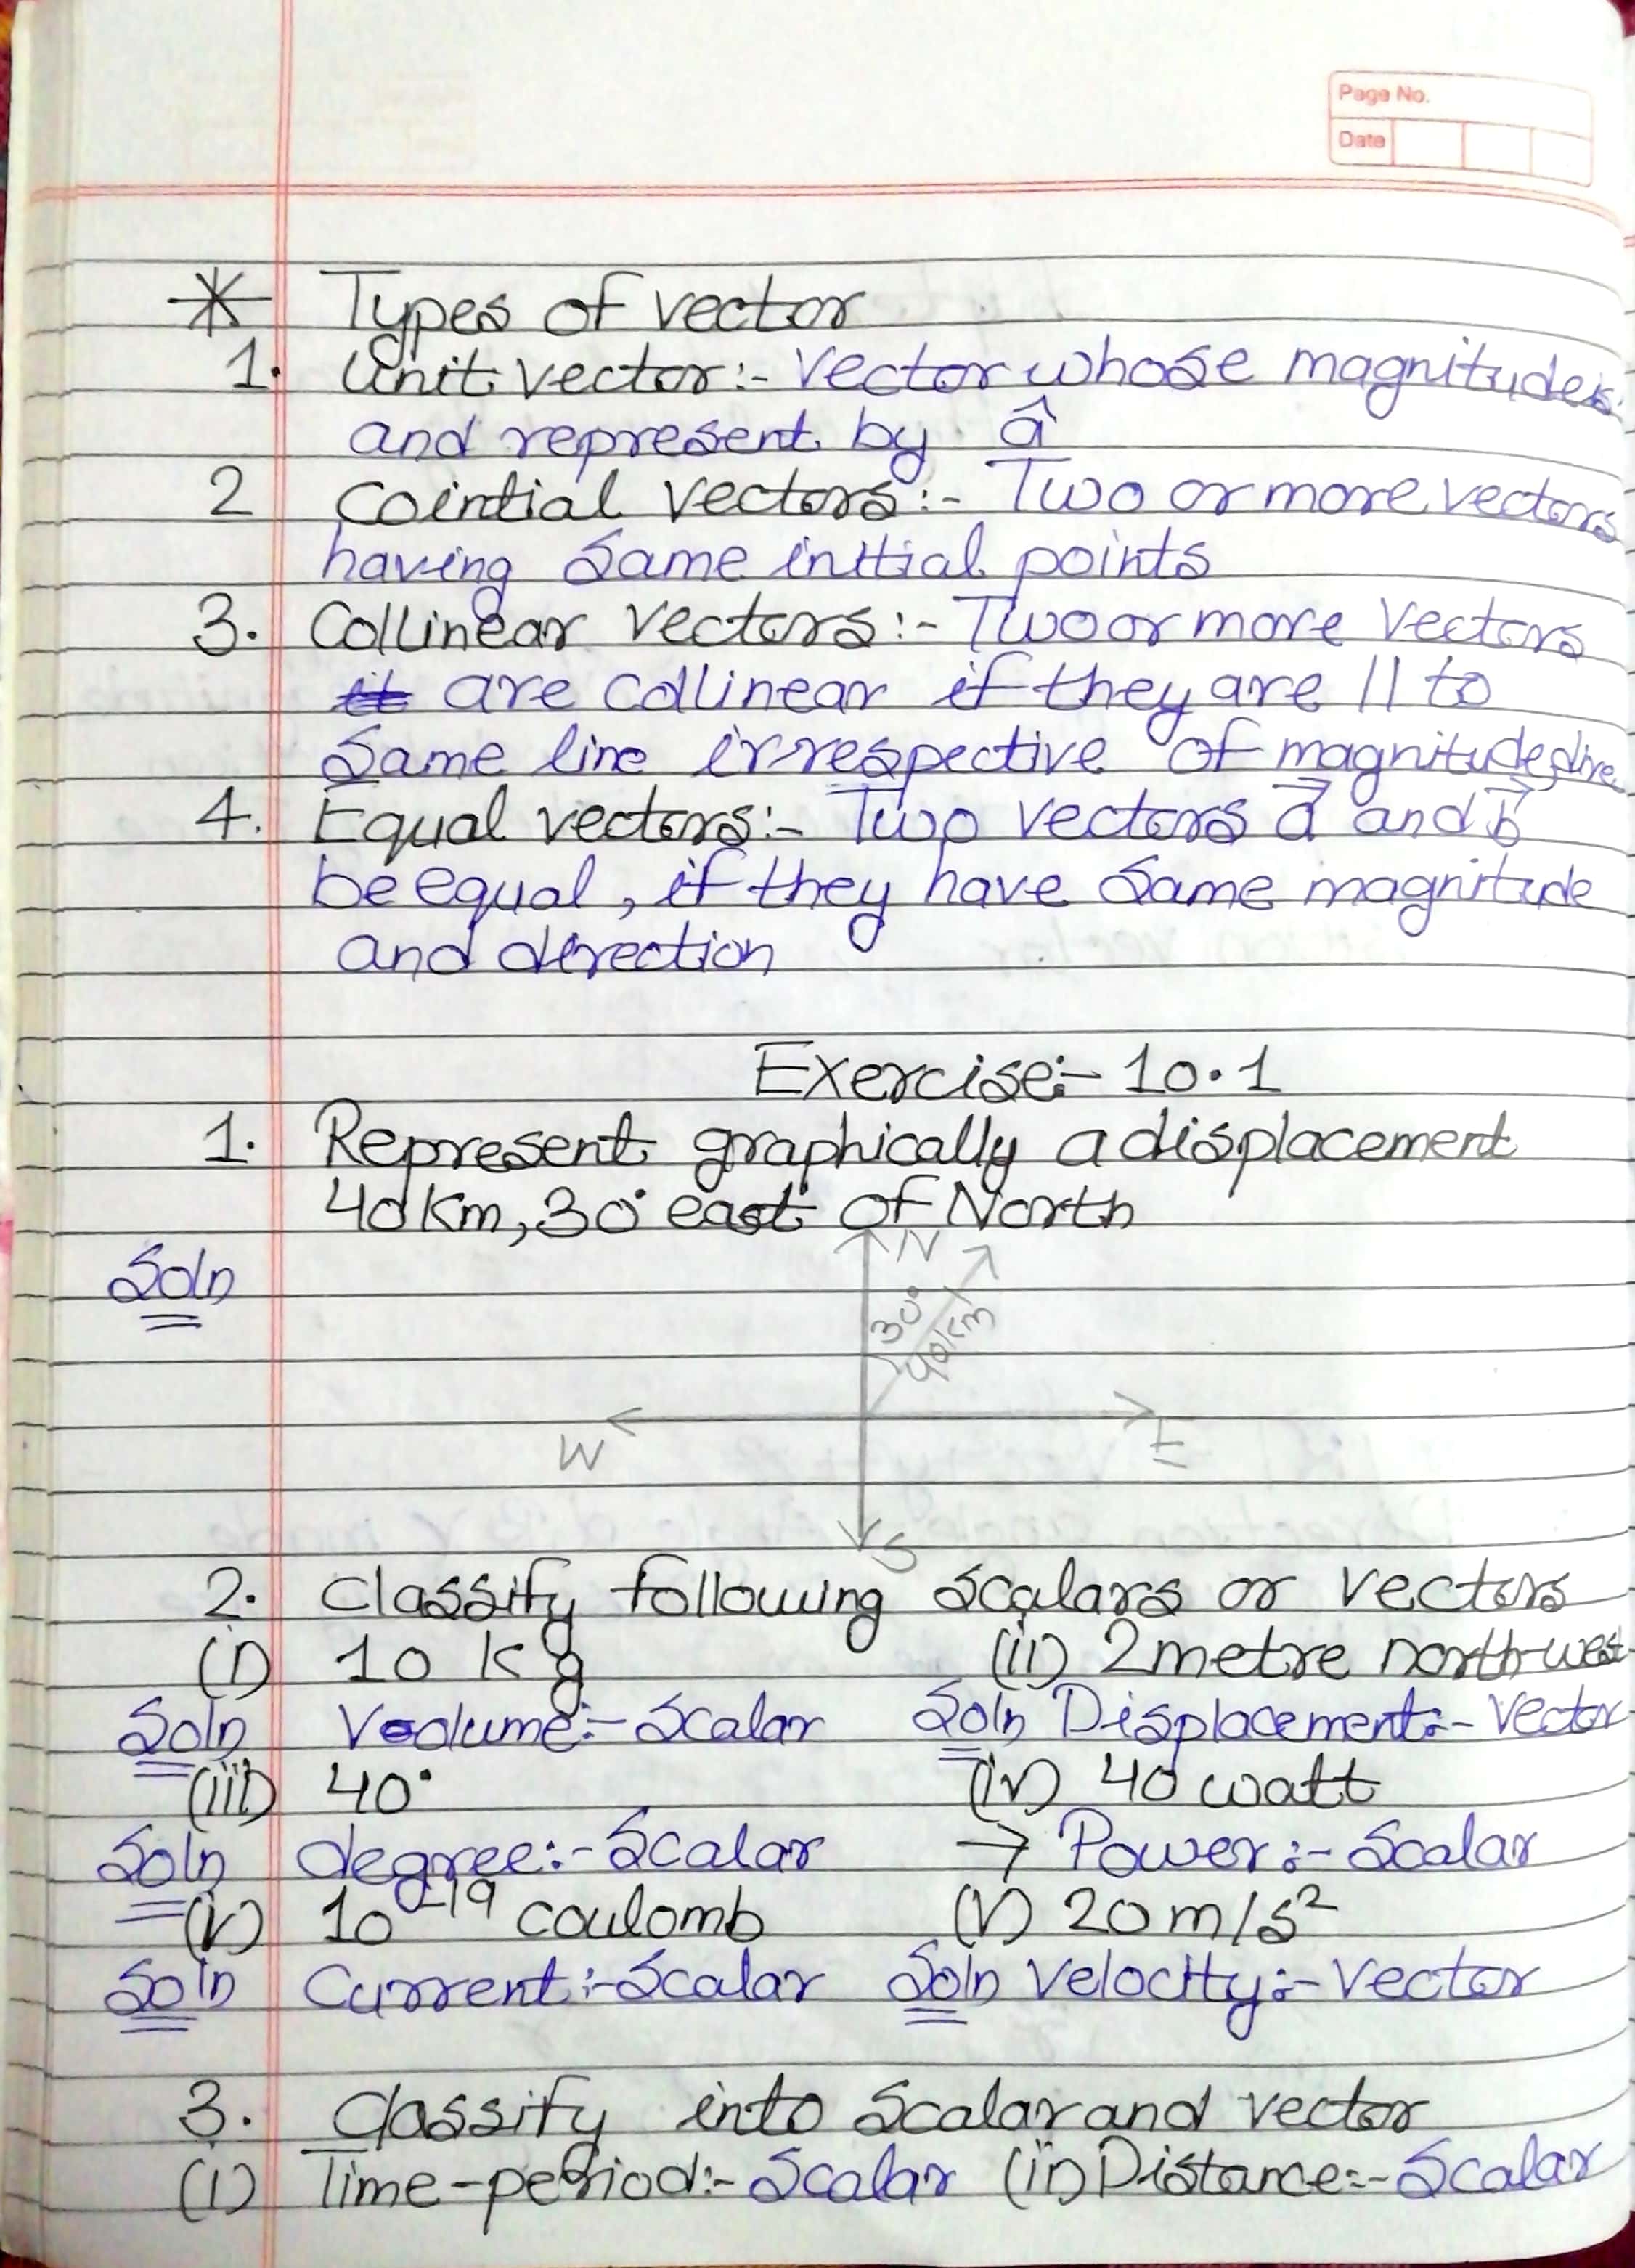 Page No.
Date
* Types of vector
1. Unit vector:- Vector whose magnitude is
and represent by â
2 Cointial vectors:- Two or more vectors
having same initial points
3. Collinear vectors:- Two or more vectors
are collinear if they are || to
same line irrespective of magnitude,
4. Equal vectors:- Two vectors a⃗ and b⃗
be equal, if they have same magnitude
and direction
Exercise:- 10.1
1. Represent graphically a displacement
40 km, 30° east of North
Soln
N
30°
40km
W E
S
2. Classify following scalars or vectors
(i) 10 kg (ii) 2 metre north-west
Soln Volume:- Scalar Soln Displacement:- Vector
(iii) 40° (iv) 40 watt
Soln degree:- Scalar → Power:- Scalar
(v) 10⁻¹⁹ coulomb (v) 20 m/s²
Soln Current:- Scalar Soln Velocity:- Vector
3. Classify into scalar and vector
(i) Time-period:- Scalar (ii) Distance:- Scalar